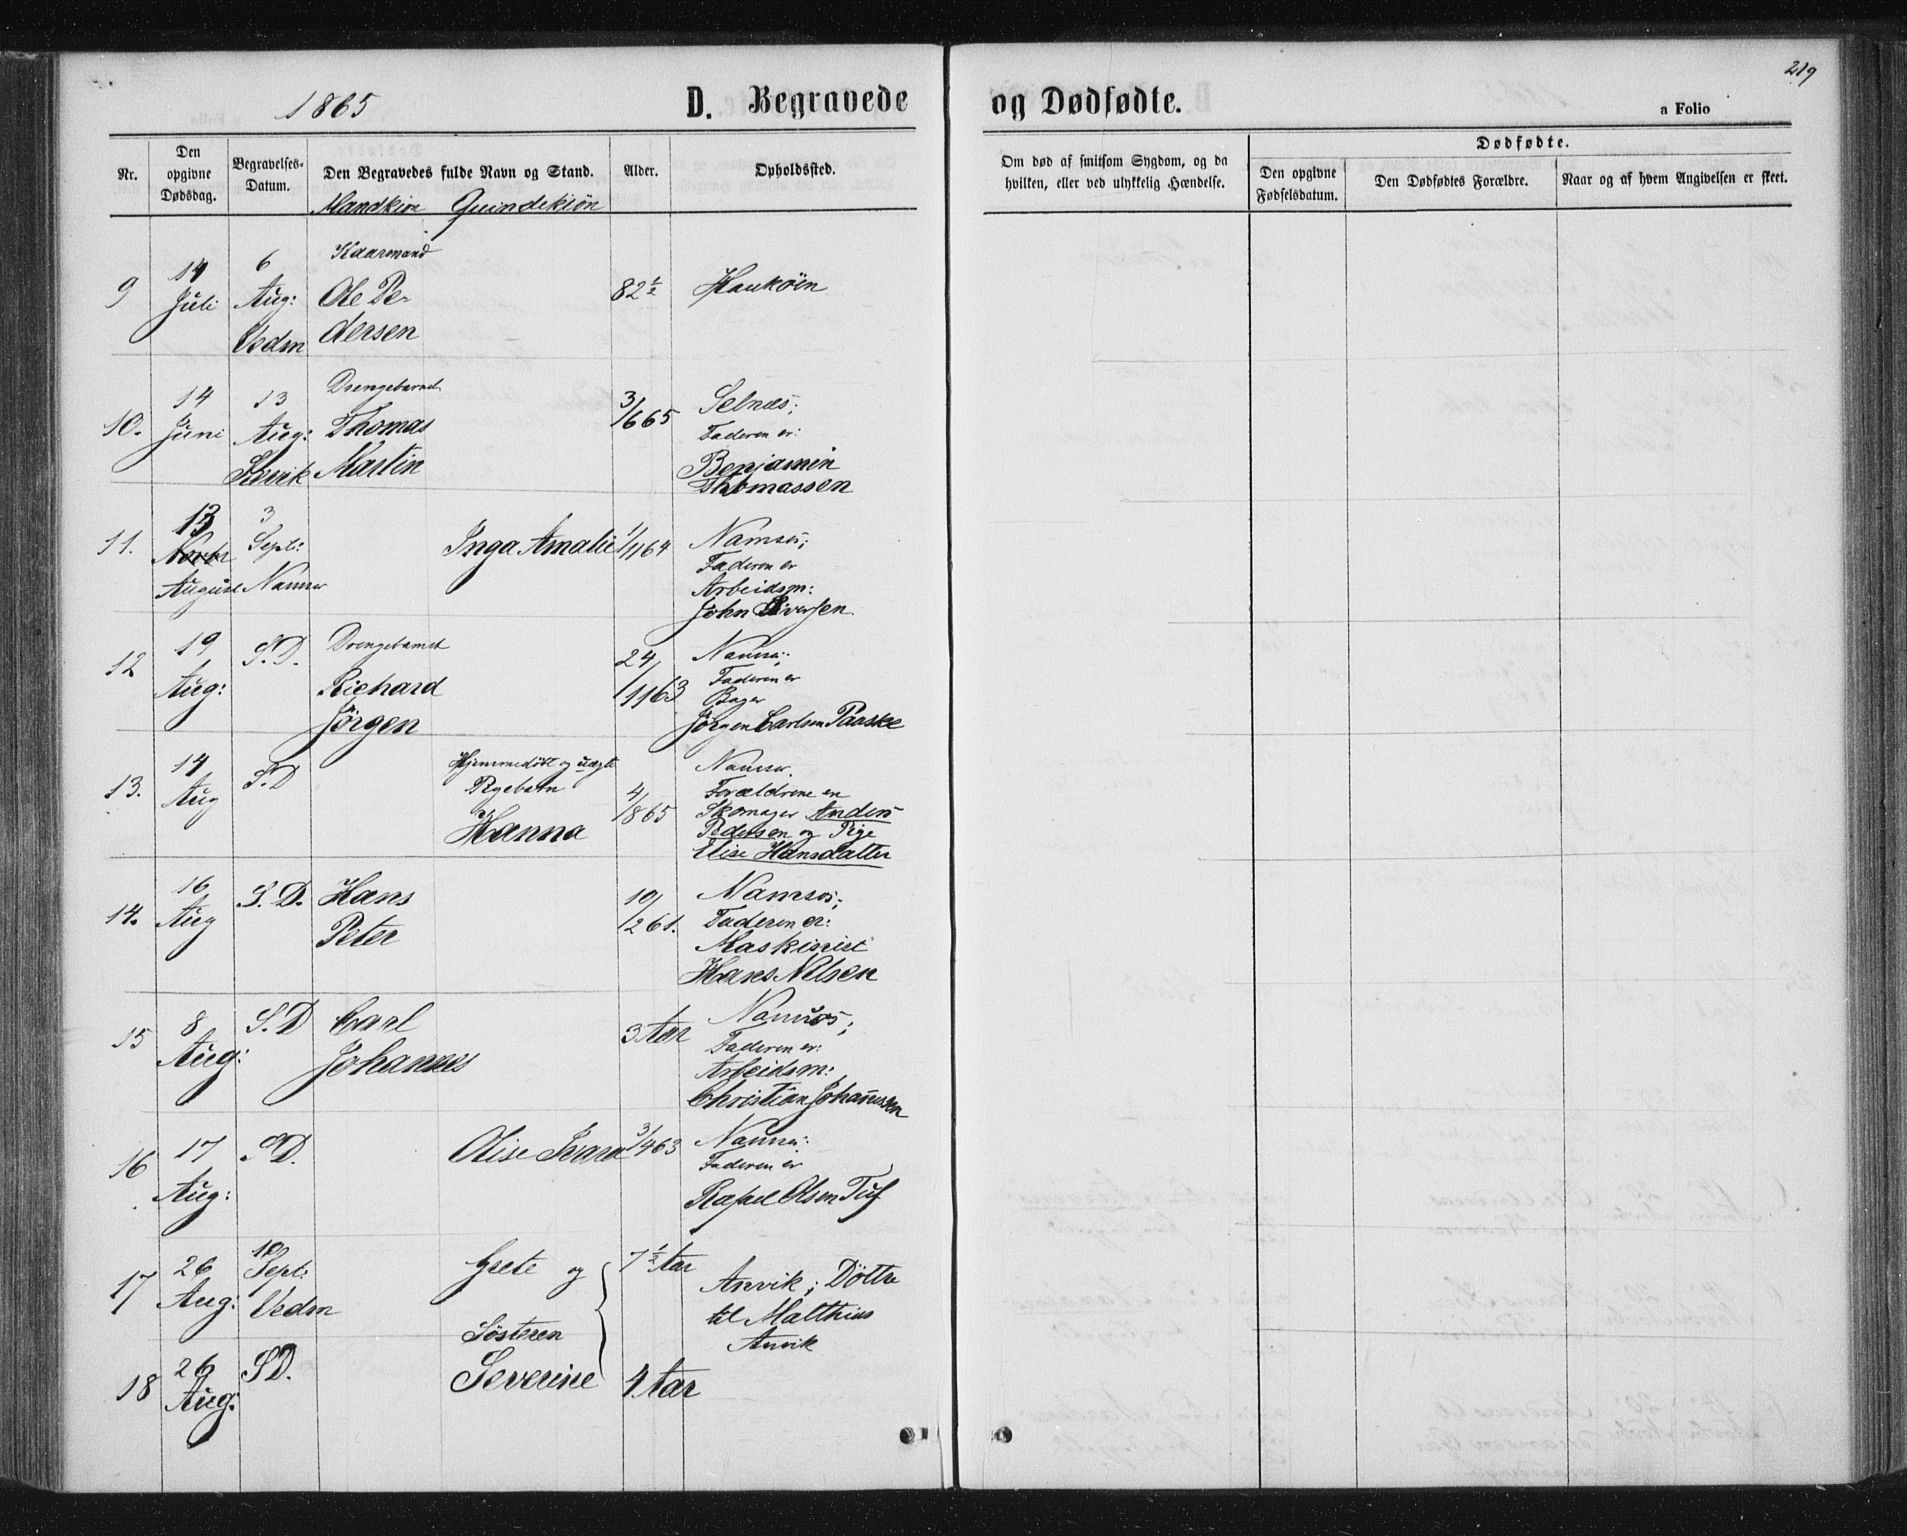 1865
D. Begravede
og Dødfødte.
219
a Folio
Nr.
Den opgivne Dødsdag.
Begravelses-Datum.
Den Begravedes fulde Navn og Stand.
Mandkiøn Quindekiøn
Alder.
Opholdssted.
Om død af smitsom Sygdom, og da hvilken, eller ved ulykkelig Hændelse.
Dødfødte.
Den opgivne Fødselsdatum.
Den Dødfødtes Forældre.
Naar og af hvem Angivelsen er skeet.
9
14 Juli
6 Aug: Vedm
Kaarmand
Ole Pe-
dersen
82 1/2
Haukøen
10.
14 Juni
13 Aug:
Drengebarnet
Thomas
Martin
3/665
Selnæs;
Faderen er:
Benjamin
Thomassen
11.
13
August
3 Sept: Namsos
Inga Amalie
1/1164
Namsos;
Faderen er
Arbeidsm:
John Siversen
12
19 Aug:
S. D.
Drengebarnet
Richard
Jørgen
24/1163
Namsos;
Faderen er
Bager
Jørgen Carlsen Paaske
13.
14 Aug
S. D
Hjemmedøbt og uægte
Pigebarn
Hanna
4/865
Namsos.
Forældrene er
Skomager Anders
Pedersen og Pige
Elise Hansdatter
14.
16 Aug
S. D.
Hans
Peter
10/261.
Namsos;
Faderen er:
Maskinist
Hans Nilsen
15
8 Aug:
S. D
Carl
Johannes
3 Aar
Namsos;
Faderen er:
Arbeidsm:
Christian Johannssen
16
17 Aug:
S D.
Olise
3/463
Namsos:
Faderen er
Rafael Olsen
17
26 Aug:
10 Sept: Vedm
Grete og
7 1/2 Aar
Anvik; Døttre
til Matthias
Anvik
Søsteren
18
26 Aug:
S D.
Severine
4 Aar